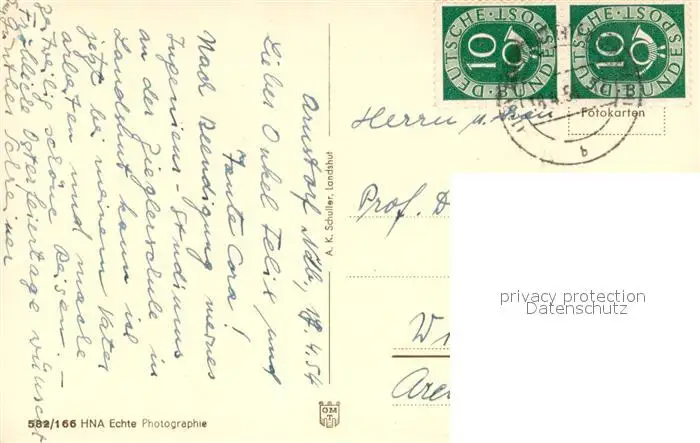 Arnstorf Ndb, 17.4.54
Lieber Onkel Felix, und
Tante Cora!
Nach Beendigung meines
Ingenieur-Studiums
an der Zieglerschule in
Landshut kann ich
jetzt bei meinem Vater
arbeiten und mache
zeitweilig schöne Reisen. –
Fröhliche Osterfeiertage wünscht
Günther Schreiner
A. K. Schuller, Landshut
582/166 HNA Echte Photographie
OM
DEUTSCHE BUNDESPOST
10
DEUTSCHE BUNDESPOST
10
b
Fotokarten
Herrn u.
Prof. D
privacy protection
Datenschutz